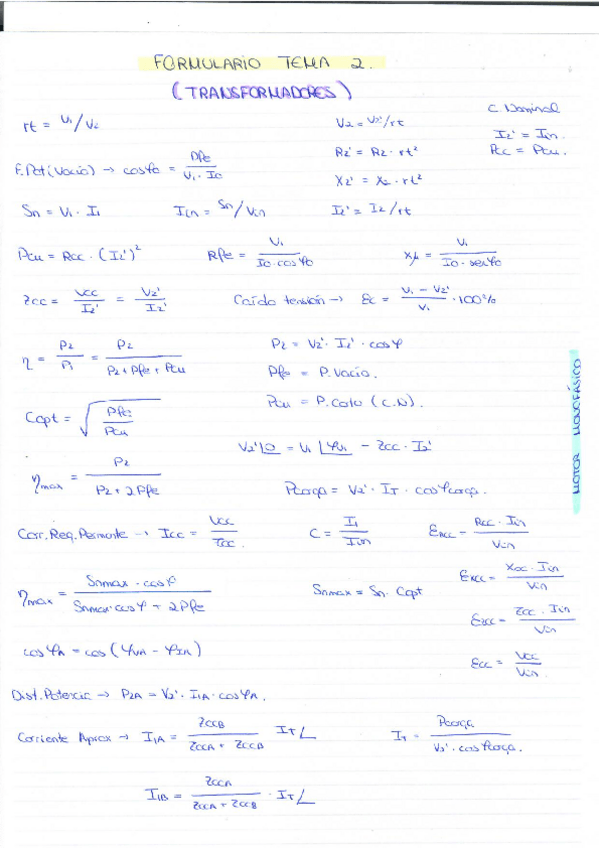 FORMULARIO TEMA 2.
(TRANSFORMADORES)
C. Nominal
rt = V₁/V₂
V₂ = V₂'/rt
I₂' = I₁n.
Pcc = Pcu.
F.Pot(Vacío) → cosφo = Pfe / (V₁ · Io)
R₂' = R₂ · rt²
X₂' = X₂ · rt²
Sn = V₁ · I₁
I₁n = Sn/V₁n
I₂' = I₂/rt
Pcu = Rcc · (I₂')²
Rfe = V₁ / (Io·cosφo)
Xμ = V₁ / (Io·senφo)
Zcc = Vcc / I₂' = V₂' / I₂'
Caída tensión → Ec = (V₁ - V₂') / V₁ · 100%
η = P₂ / P₁ = P₂ / (P₂ + Pfe + Pcu)
P₂ = V₂' · I₂' · cosφ
Pfe = P. Vacío.
Copt = √(Pfe / Pcu)
Pcu = P. Corto (C.N).
V₂' |0 = V₁ |φv₁ - Zcc · I₂'
ηmax = P₂ / (P₂ + 2Pfe)
Pcarga = V₂' · IT · cosφcarga.
Corr. Reg. Permante → Icc = Vcc / Zcc
C = I₁ / I₁n
ERcc = Rcc · I₁n / V₁n
EXcc = Xcc · I₁n / V₁n
ηmax = Snmax · cosφ / (Snmax·cosφ + 2Pfe)
Snmax = Sn · Copt
Ecc = Zcc · I₁n / V₁n
cosφA = cos(φVA - φIA)
Ecc = Vcc / V₁n.
Dist. Potencia → P₂A = V₂' · I₁A · cosφA.
Corriente Aprox → I₁A = ZccB / (ZccA + ZccB) IT∠
IT = Pcarga / (V₂' · cosφcarga.)
I₁B = ZccA / (ZccA + ZccB) · IT∠
MOTOR MONOFÁSICO